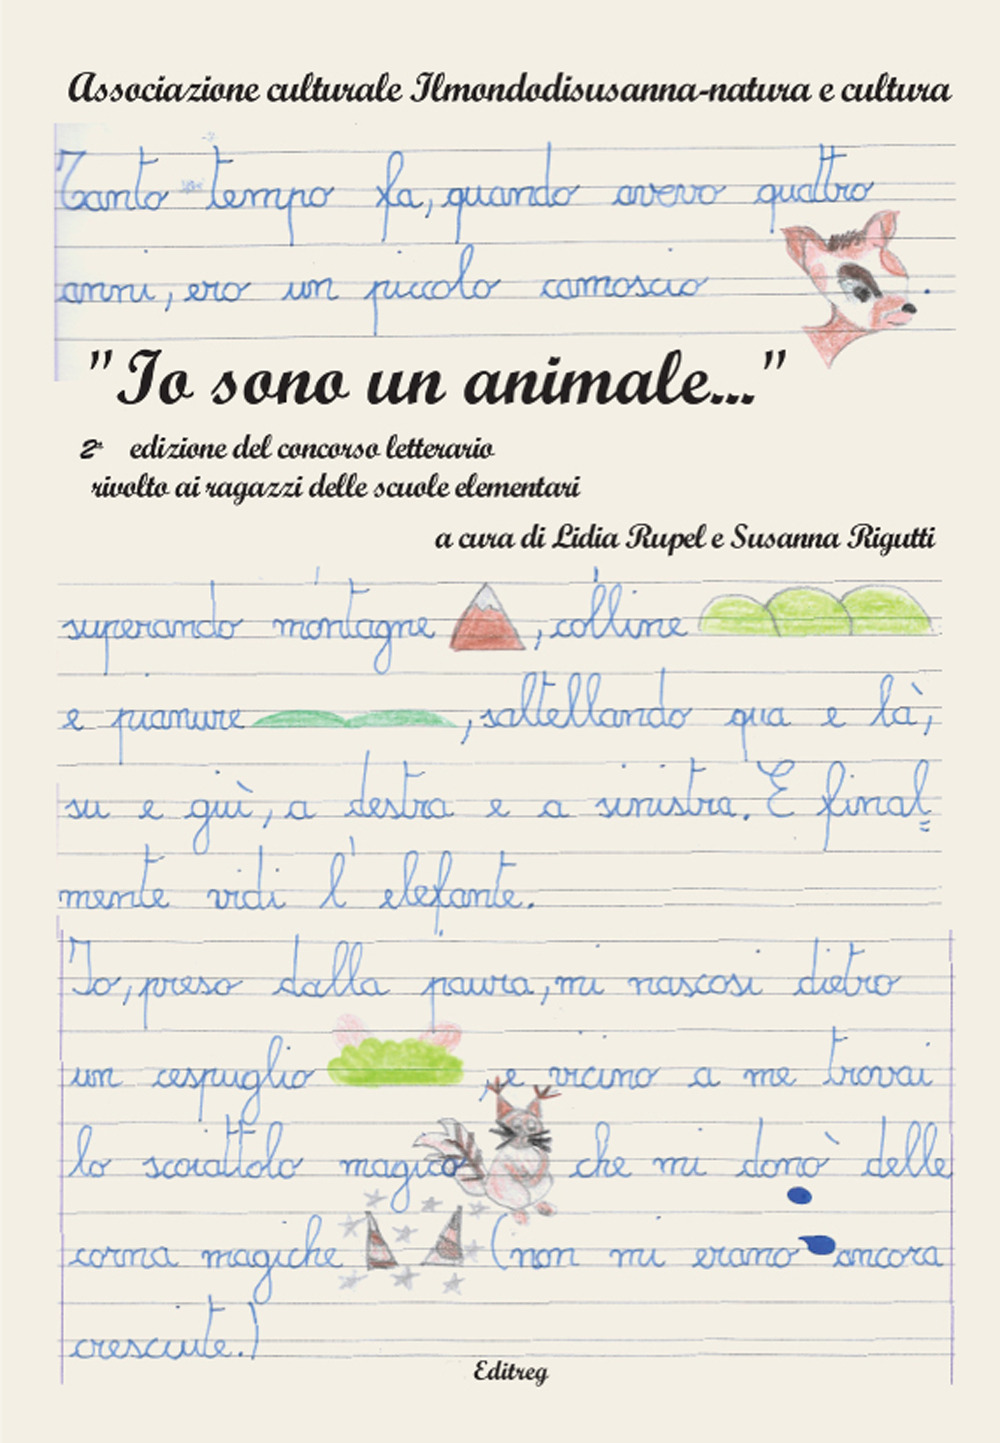 Associazione culturale Ilmondodisusanna-natura e cultura
Tanto tempo fa, quando avevo quattro
anni, ero un piccolo camoscio .
"Io sono un animale..."
2ª edizione del concorso letterario
rivolto ai ragazzi delle scuole elementari
a cura di Lidia Rupel e Susanna Rigutti
superando montagne , colline
e pianure , saltellando qua e là,
su e giù, a destra e a sinistra. E final=
mente vidi l'elefante.
Io, preso dalla paura, mi nascosi dietro
un cespuglio e vicino a me trovai
lo scoiattolo magico che mi donò delle
corna magiche (non mi erano ancora
cresciute.)
Editreg